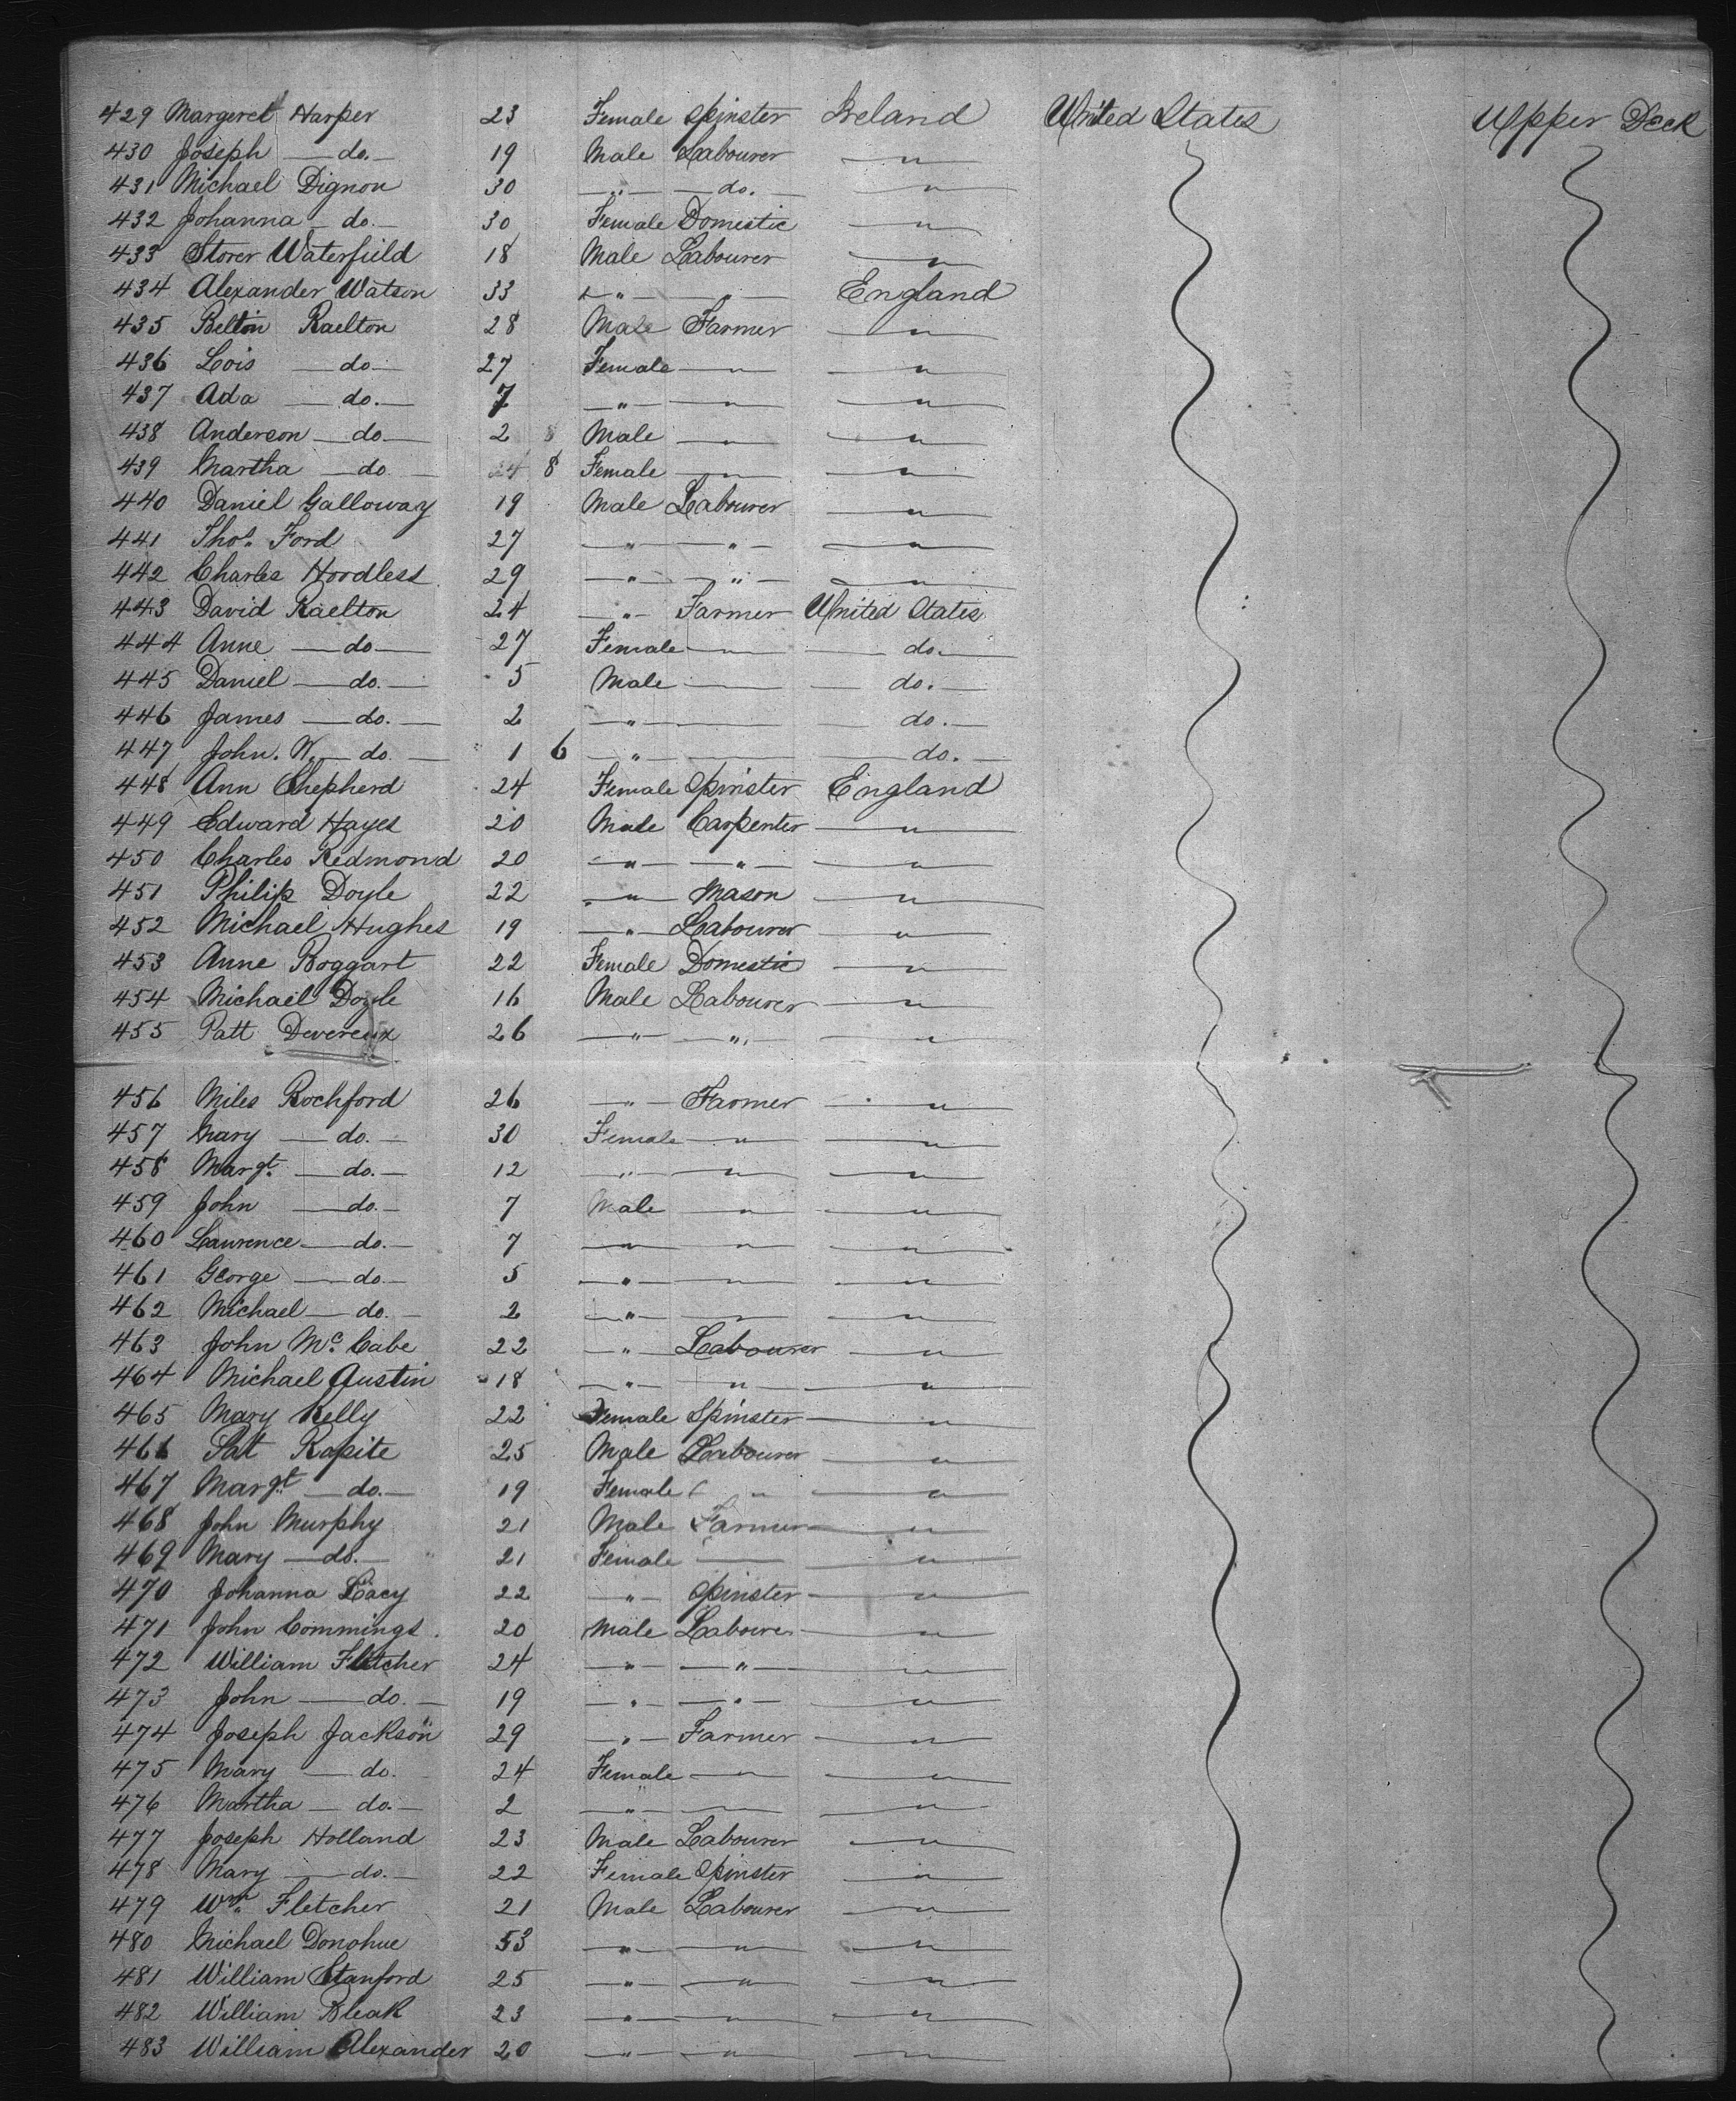 429 Margeret Harper 23 Female Spinster Ireland United States Upper Deck
430 Joseph — do. — 19 Male Labourer — " —
431 Michael Dignon 30 — " — — do. — — " —
432 Johanna — do. — 30 Female Domestic — " —
433 Storer Waterfield 18 Male Labourer — " —
434 Alexander Watson 33 — " — — " — England
435 Belton Raelton 28 Male Farmer — " —
436 Lois — do — 27 Female — " — — " —
437 Ada — do. — 7 — " — — " — — " —
438 Anderson — do — 2 8 Male — " — — " —
439 Martha — do. — 8 Female — " — — " —
440 Daniel Galloway 19 Male Labourer — " —
441 Thos. Ford 27 — " — — " — — " —
442 Charles Hoodless 29 — " — — " — — " —
443 David Raelton 24 — " — Farmer United States
444 Anne — do — 27 Female — " — — do. —
445 Daniel — do. — 5 Male — — do. —
446 James — do. — 2 — " — — — do. —
447 John. W. — do. — 1 6 — " — — — do. —
448 Ann Shepherd 24 Female Spinster England
449 Edward Hayes 20 Male Carpenter — " —
450 Charles Redmond 20 — " — — " — — " —
451 Philip Doyle 22 — " — Mason — " —
452 Michael Hughes 19 — " — Labourer — " —
453 Anne Boggart 22 Female Domestic — " —
454 Michael Doyle 16 Male Labourer — " —
455 Patt Devereux 26 — " — — " — — " —
456 Miles Rochford 26 — " — Farmer — " —
457 Mary — do. — 30 Female — " — — " —
458 Margt. — do. — 12 — " — — " — — " —
459 John — do. — 7 Male — " — — " —
460 Lawrence — do. — 7 — " — — " — — " —
461 George — do — 5 — " — — " — — " —
462 Michael — do. — 2 — " — — " — — " —
463 John Mc. Cabe 22 — " — Labourer — " —
464 Michael Austin 18 — " — — " — — " —
465 Mary Kelly 22 Female Spinster — " —
466 Pat Rapite 25 Male Labourer — " —
467 Margt — do. — 19 Female " — " —
468 John Murphy 21 Male Farmer — " —
469 Mary — do. — 21 Female — — " —
470 Johanna Lacy 22 — " — Spinster — " —
471 John Commings 20 Male Labourer — " —
472 William Fletcher 24 — " — — " — — " —
473 John — do. — 19 — " — — " — — " —
474 Joseph Jackson 29 — " — Farmer — " —
475 Mary — do. 24 Female — " — — " —
476 Martha — do. — 2 — " — — " — — " —
477 Joseph Holland 23 Male Labourer — " —
478 Mary — do. — 22 Female Spinster — " —
479 Wm. Fletcher 21 Male Labourer — " —
480 Michael Donohue 53 — " — — " — — " —
481 William Stanford 25 — " — — " — — " —
482 William Bleak 23 — " — — " — — " —
483 William Alexander 20 — " — — " — — " —